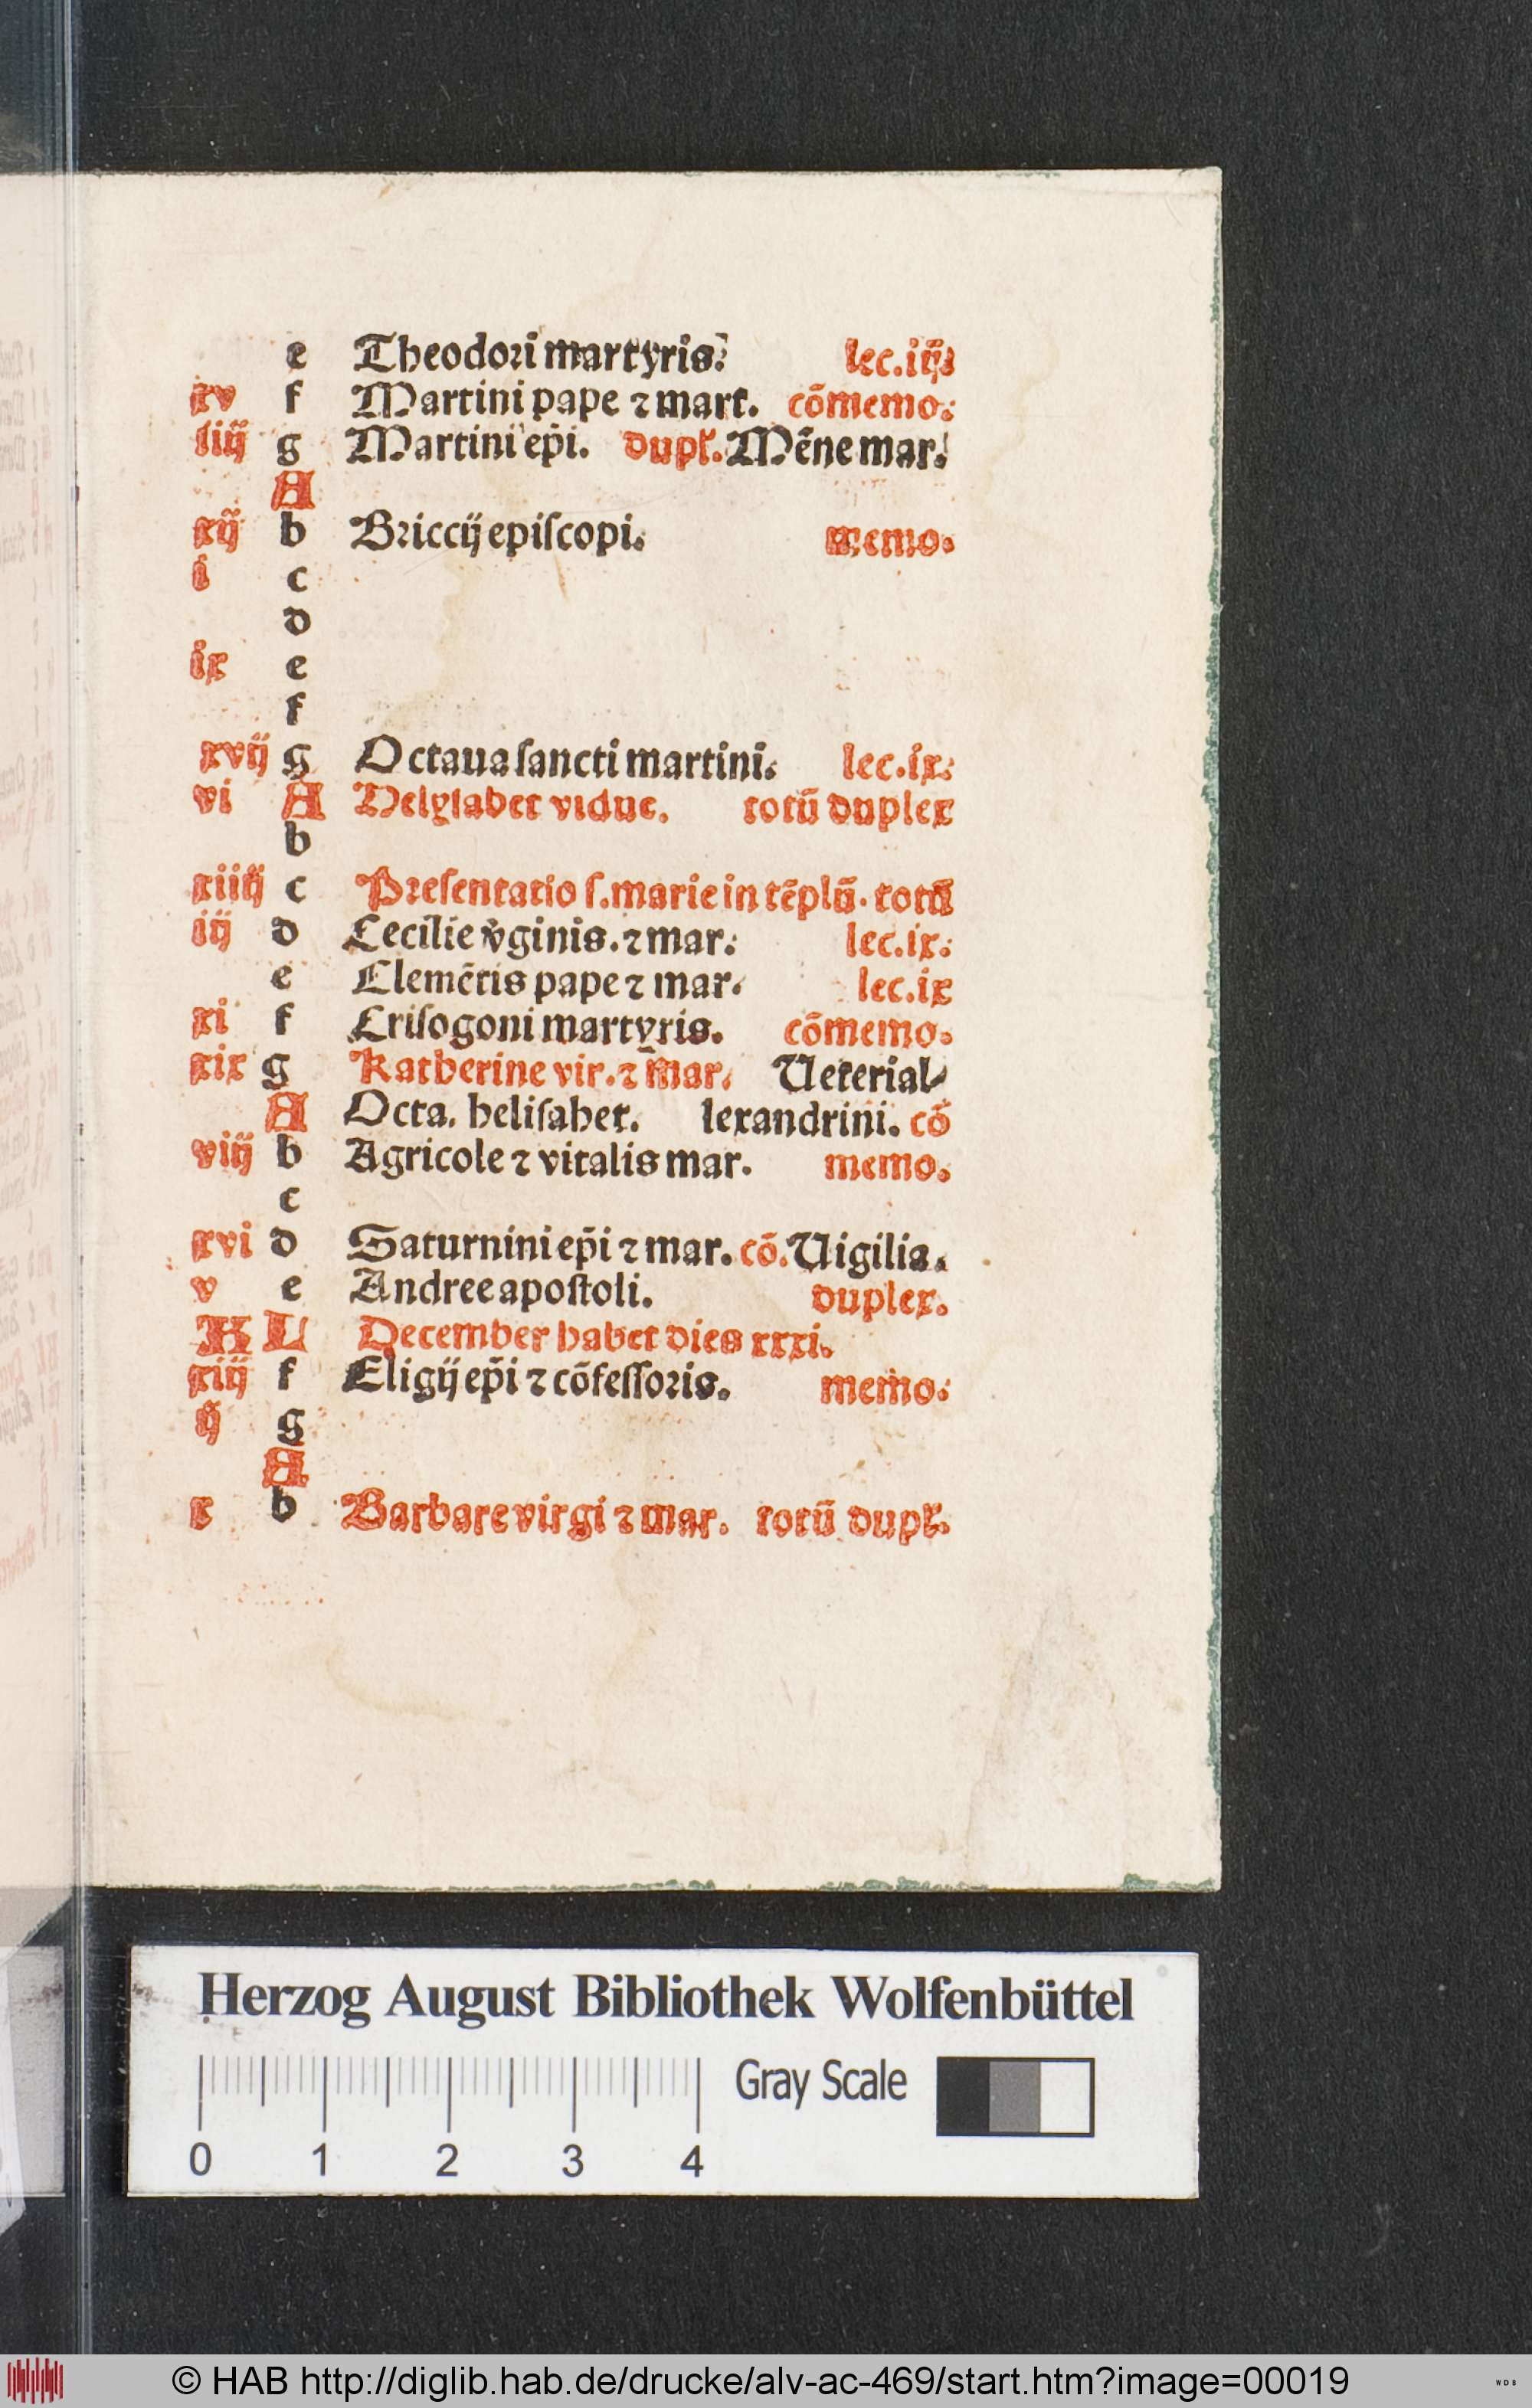 e Theodori martyris. lec.iij
xv f Martini pape ⁊ mart. cōmemo.
iiij g Martini ep̄i. dupl. Mēne mar.
A
xij b Briccij epiſcopi. memo.
i c
d
ix e
f
xvij g Octaua ſancti martini. lec.ix.
vi A Helyſabet vidue. totū duplex
b
xiiij c Preſentatio ſ. marie in tēplū. totū
iij d Cecilie v̓ginis. ⁊ mar. lec.ix.
e Clemētis pape ⁊ mar. lec.ix
xi f Criſogoni martyris. cōmemo.
xix g Katherine vir. ⁊ mar. Ueterial
A Octa. heliſabet. lexandrini. cō
viij b Agricole ⁊ vitalis mar. memo.
c
xvi d Saturnini ep̄i ⁊ mar. cō. Uigilia.
v e Andree apoſtoli. duplex.
KL December habet dies xxxi.
xiij f Eligij ep̄i ⁊ cōfeſſoris. memo.
ij g
A
x b Barbare virgi ⁊ mar. totū dupl.
Herzog August Bibliothek Wolfenbüttel
Gray Scale
0 1 2 3 4
© HAB http://diglib.hab.de/drucke/alv-ac-469/start.htm?image=00019